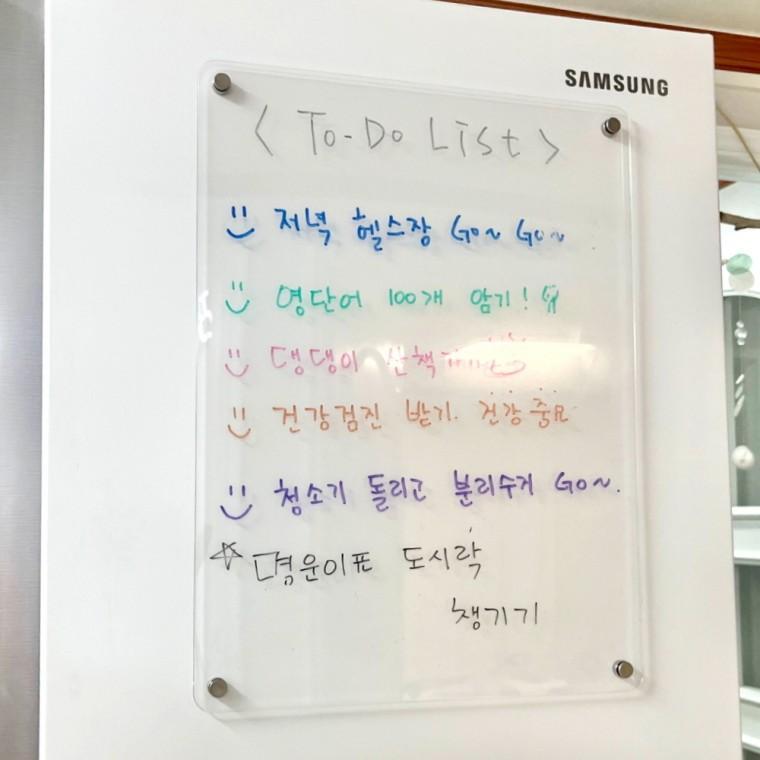 SAMSUNG
< To-Do List >
저녁 헬스장 Go~ Go~
영단어 100개 암기!
댕댕이 산책
건강검진 받기. 건강 중요
청소기 돌리고 분리수거 GO~.
도시락
챙기기